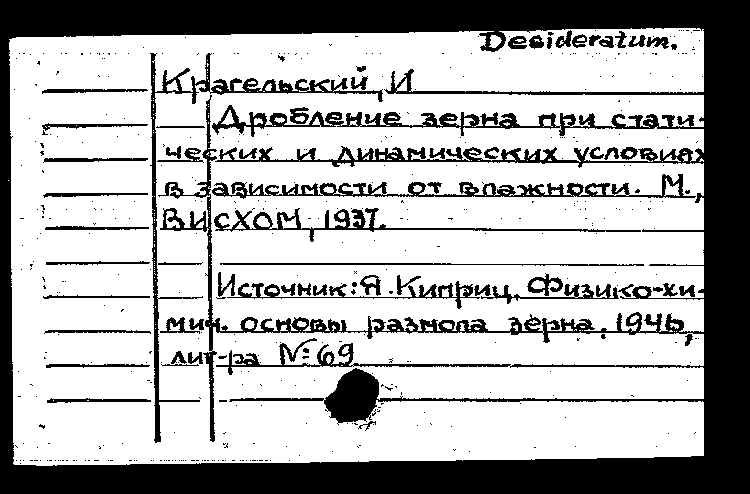 Desideratum.
Крагельский, И
Дробление зерна при стати-
ческих и динамических условиях
в зависимости от влажности. М.,
ВИСХОМ, 1937.
Источник: Я. Куприц. Физико-хи-
мич. основы размола зерна. 1946,
лит-ра №69